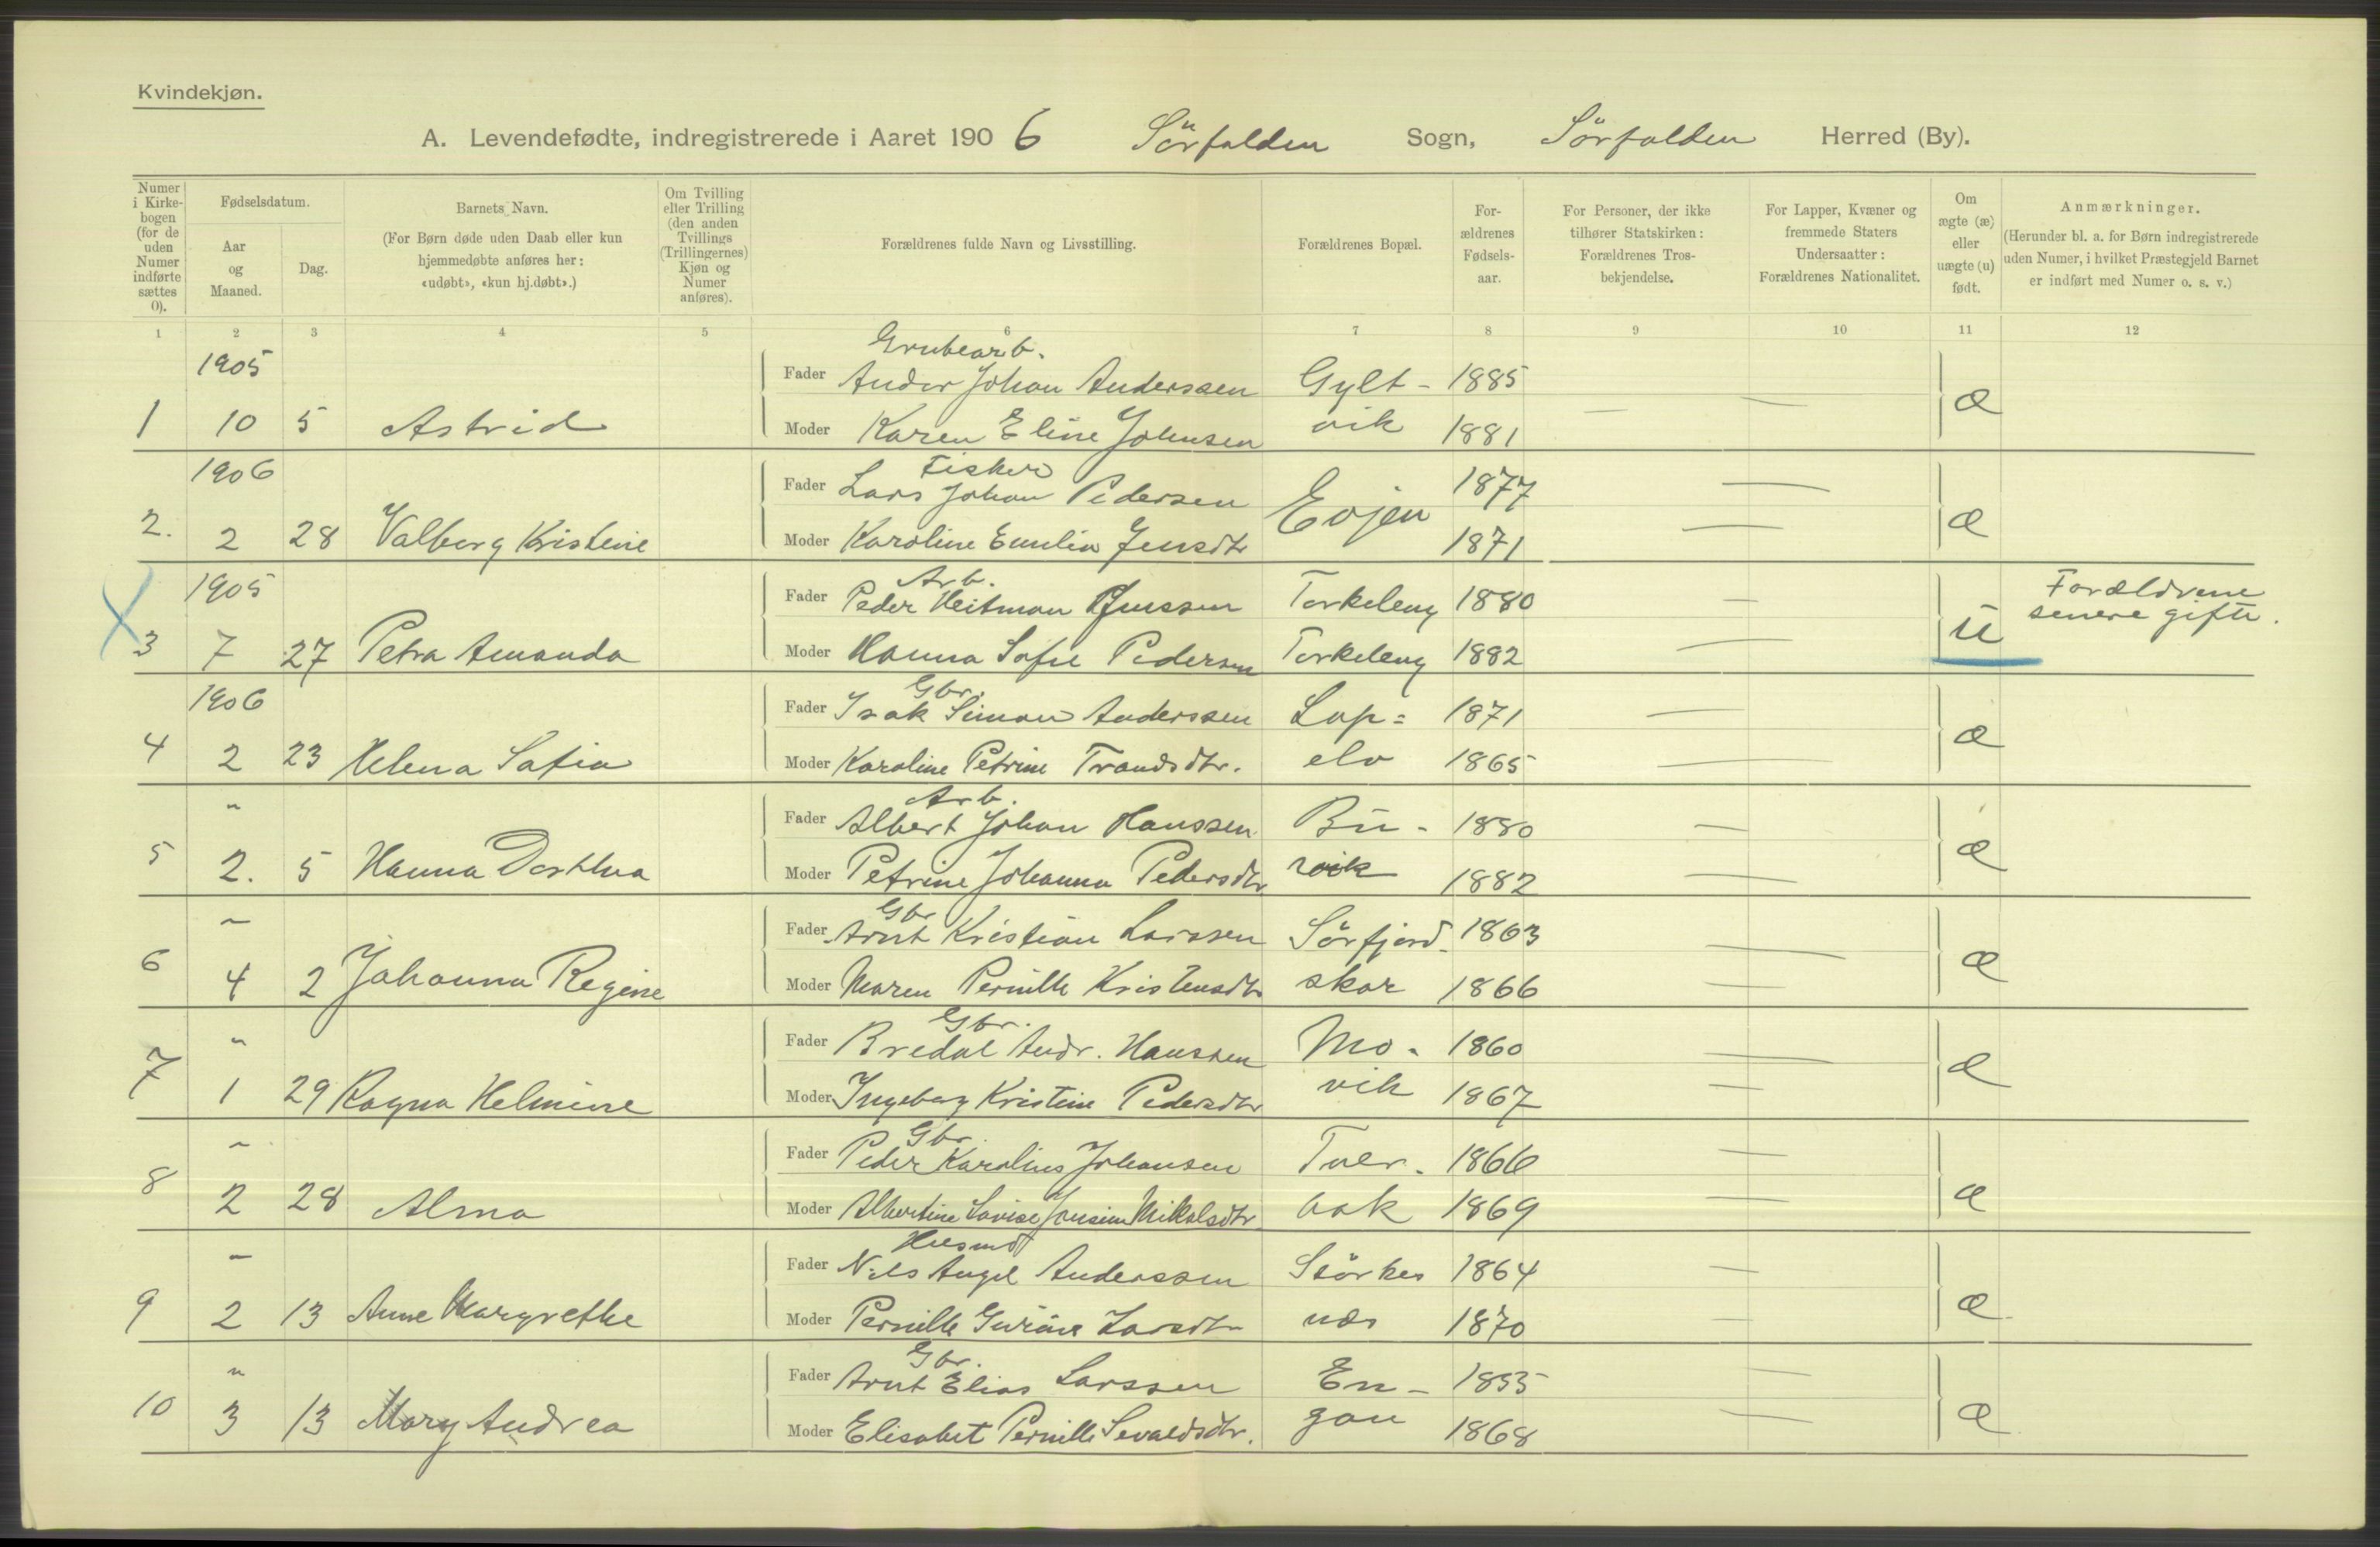 Kvindekjøn.
A. Levendefødte, indregistrerede i Aaret 1906 Sörfolden Sogn, Sörfolden Herred (By).
Numer i Kirkebogen (for de uden Numer indførte sættes 0).
Fødselsdatum.
Aar og Maaned.
Dag.
Barnets Navn.
(For Børn døde uden Daab eller kun hjemmedøbte anføres her: «udøbt», «kun hj.døbt».)
Om Tvilling eller Trilling (den anden Tvillings (Trillingernes) Kjøn og Numer anføres).
Forældrenes fulde Navn og Livsstilling.
Forældrenes Bopæl.
For-ældrenes Fødsels-aar.
For Personer, der ikke tilhører Statskirken: Forældrenes Tros-bekjendelse.
For Lapper, Kvæner og fremmede Staters Undersaatter: Forældrenes Nationalitet.
Om ægte (æ) eller uægte (u) født.
Anmærkninger.
(Herunder bl. a. for Børn indregistrerede uden Numer, i hvilket Præstegjeld Barnet er indført med Numer o. s. v.)
1 2 3 4 5 6 7 8 9 10 11 12
1905 Grubearb.
Fader Ander Johan Anderssen Gylt- 1885
1 10 5 Astrid Moder Karen Eline Johnsen vik 1881 æ
1906 Fisker
Fader Lars Johan Pedersen Evjen 1877
2. 2 28 Valborg Kristine Moder Karoline Emilie Jensdtr 1871 æ
1905 Arb.
Fader Peder Heitman Jenssen Torkeleng 1880 Forældrene
3 7 27 Petra Amanda Moder Hanna Sofie Pedersen Torkeleng 1882 u senere gifte.
1906 Gbr.
Fader Isak Simon Anderssen Lap= 1871
4 2 23 Helena Sofia Moder Karoline Petrine Trondsdtr. elv 1865 æ
" Arb.
Fader Albert Johan Hanssen Bu- 1880
5 2. 5 Hanna Dorthea Moder Petrine Johanna Pedersdtr vik 1882 æ
" Gbr
Fader Arnt Kristian Larssen Sörfjord- 1863
6 4 2 Johanna Regine Moder Maren Pernille Kristensdtr skar 1866 æ
" Gbr.
Fader Bredal Andr. Hanssen Mo- 1860
7 1 29 Ragna Helmine Moder Ingeborg Kristine Pedersdtr vik 1867 æ
" Gbr.
Fader Peder Karolius Johansen Tver- 1866
8 2 28 Alma Moder Albertine Lovise Jonsine Nikolsdtr aak 1869 æ
" Husmd
Fader Nils Angel Anderssen Störkes 1864
9 2 13 Anne Margrethe Moder Pernille Gurine Larsdtr næs 1870 æ
" Gbr.
Fader Arnt Elias Larssen En- 1855
10 3 13 Mary Andrea Moder Elisabet Pernille Sevaldsdtr. gan 1868 æ